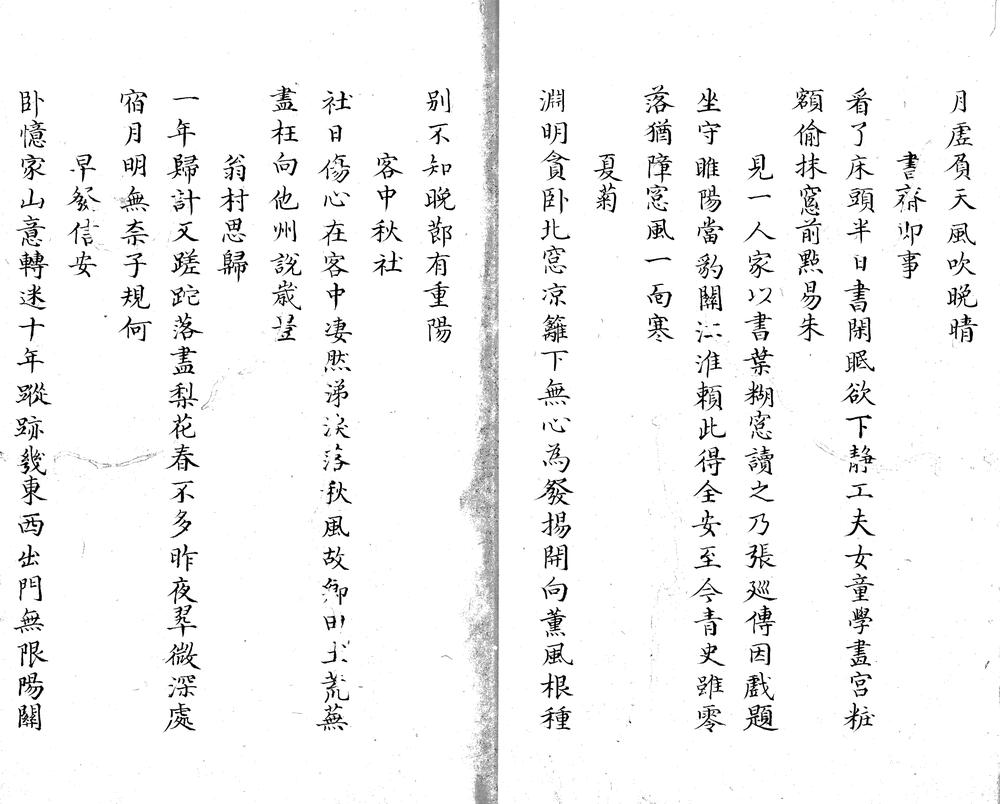 月虛負天風吹晚晴
書齋即事
看了床頭半日書閑眠欲下靜工夫女童學畫宮粧
額偷抹窓前點易朱
見一人家以書葉糊窓讀之乃張巡傳因戲題
坐守睢陽當豹關江淮賴此得全安至今青史雖零
落猶障窓風一面寒
夏菊
淵明貧臥北窓凉籬下無心為發揚開向薰風根種
別不知晚節有重陽
客中秋社
社日傷心在客中凄然涕淚落秋風故鄉田土荒蕪
盡枉向他州說歲豐
翁村思歸
一年歸計又蹉跎落盡梨花春不多昨夜翠微深處
宿月明無柰子規何
早發信安
卧憶家山意轉迷十年蹤跡幾東西出門無限陽關